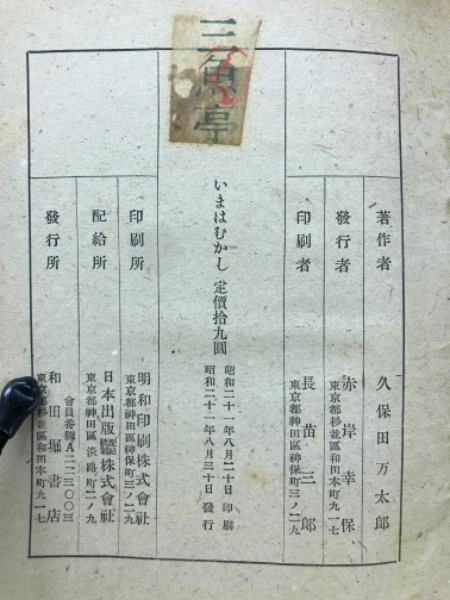 三魚亭
著作者 久保田万太郎
發行者 赤岸幸保
東京都杉並區和田本町九一七
印刷者 長苗三郎
東京都神田區神保町三ノ二九
いまはむかし 定價拾九圓
昭和二十一年八月二十日 印刷
昭和二十一年八月三十日 發行
印刷所 明和印刷株式會社
東京都神田區神保町三ノ二九
配給所 日本出版配給株式會社
東京都神田區淡路町二ノ九
會員番號A二二三〇〇三
發行所 和田堀書店
東京都杉並區和田本町九一七